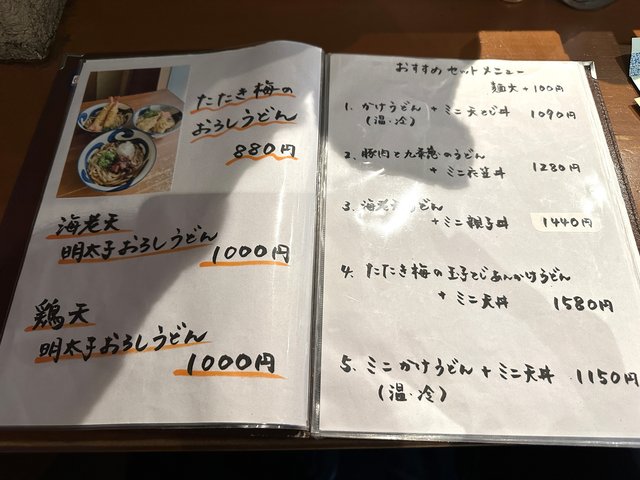 たたき梅の
おろしうどん
880円
海老天
明太子おろしうどん
1000円
鶏天
明太子おろしうどん
1000円
おすすめセットメニュー
麺大+100円
1. かけうどん+ミニ天とじ丼 1090円
(温・冷)
2. 豚肉と九条葱のうどん
+ミニ衣笠丼 1280円
3. 海老天うどん
+ミニ親子丼 1440円
4. たたき梅の玉子とじあんかけうどん
+ミニ天丼 1580円
5. ミニかけうどん+ミニ天丼 1150円
(温・冷)